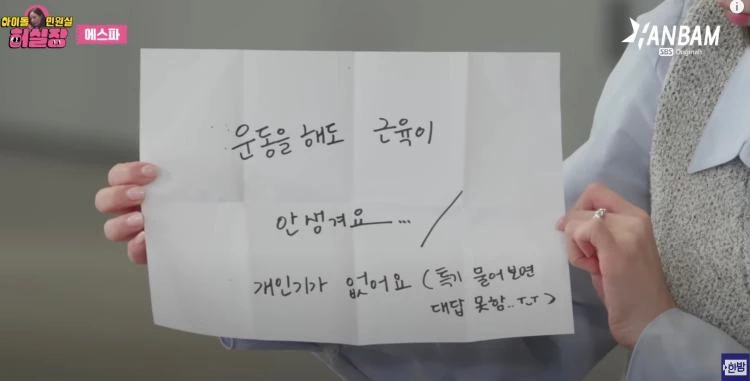 아이돌 민원실
허실장
에스파
HANBAM
SBS Originals
운동을 해도 근육이
안 생겨요... /
개인기가 없어요 (특기 물어보면
대답 못함..ㅜ.ㅜ)
한밤